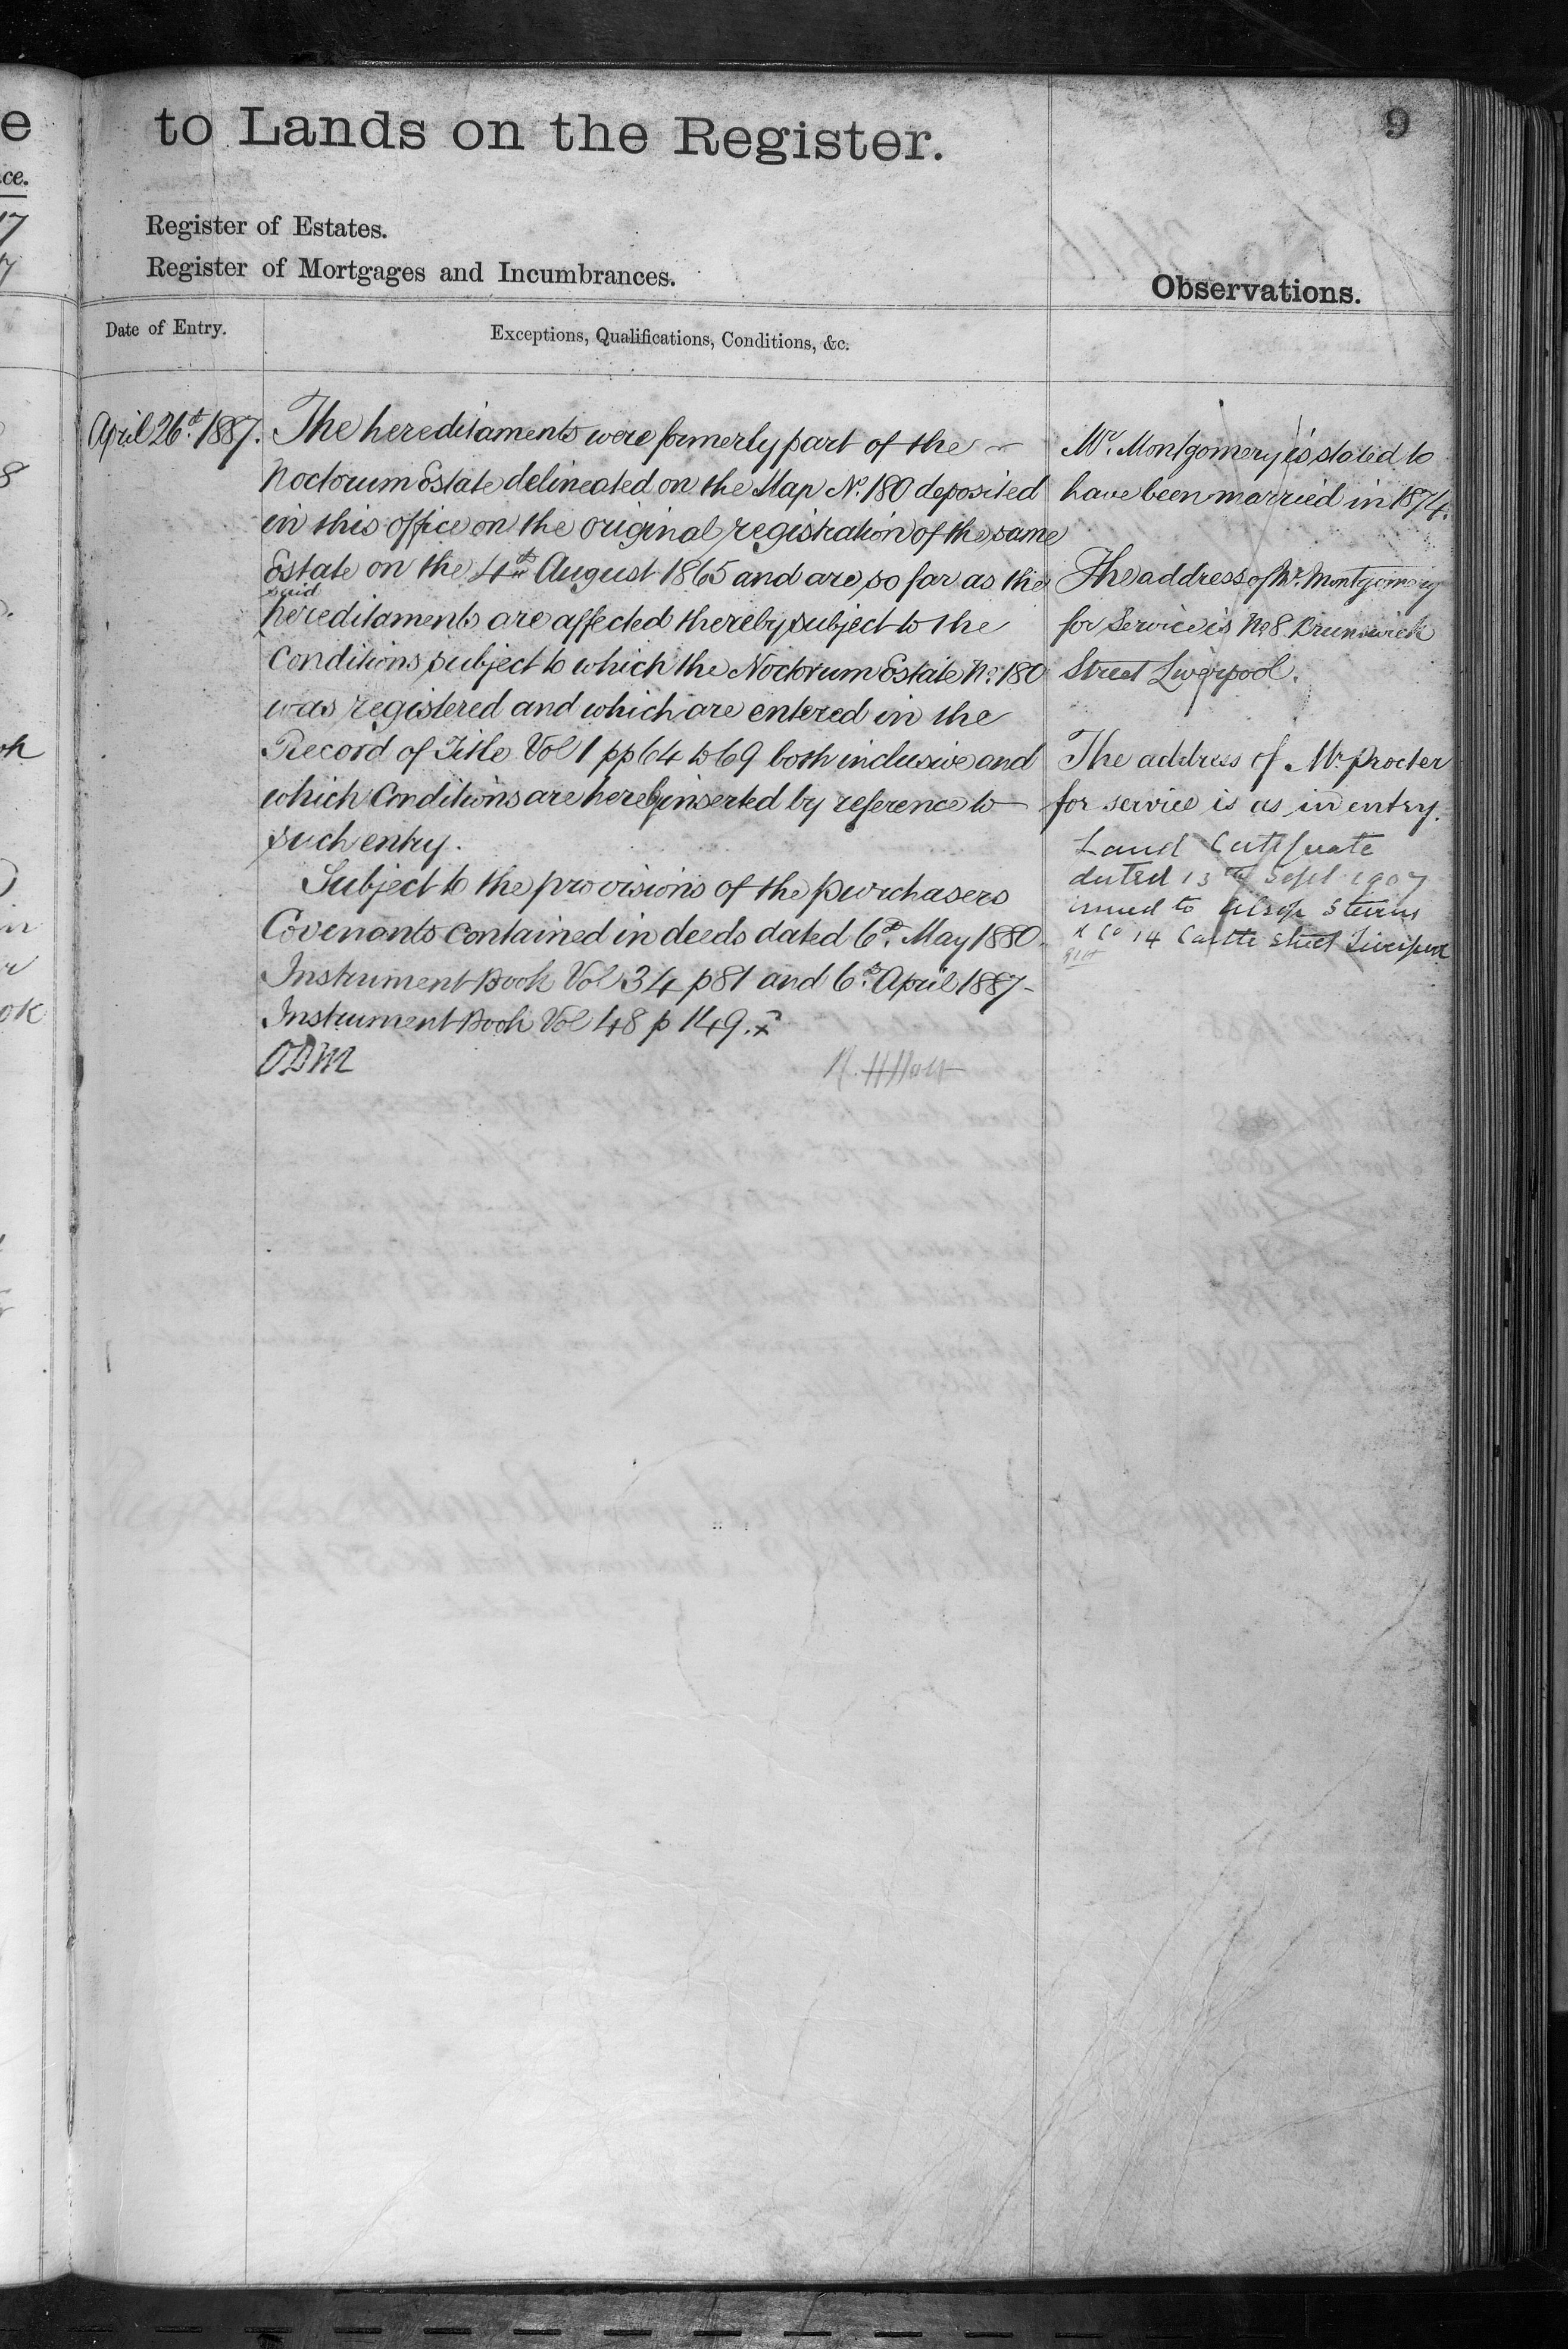 to Lands on the Register.
9
Register of Estates.
Register of Mortgages and Incumbrances.
Observations.
Date of Entry.
Exceptions, Qualifications, Conditions, &c.
April 26th 1887.
The hereditaments were formerly part of the
Noctorum Estate delineated on the Map No. 180 deposited
in this office on the original registration of the same
Estate on the 4th August 1865 and are so far as the
said
hereditaments are affected thereby subject to the
Conditions subject to which the Noctorum Estate No. 180
was registered and which are entered in the
Record of Title Vol 1 pp 64 to 69 both inclusive and
which Conditions are hereby inserted by reference to
such entry.
Subject to the provisions of the purchasers
Covenants contained in deeds dated 6th May 1880
Instrument Book Vol 34 p 81 and 6th April 1887
Instrument Book Vol 48 p 149.
ODM
Mr. Montgomery is stated to
have been married in 1874.
The address of Mr. Montgomery
for Service is No 8. Brunswick
Street Liverpool.
The address of Mr Procter
for service is as in entry.
Land Certificate
dated 13th Sept 1907
issued to Alsop Stevens
& Co 14 Castle Street Liverpool
e
ce.
17
7
8
ok
in
ok